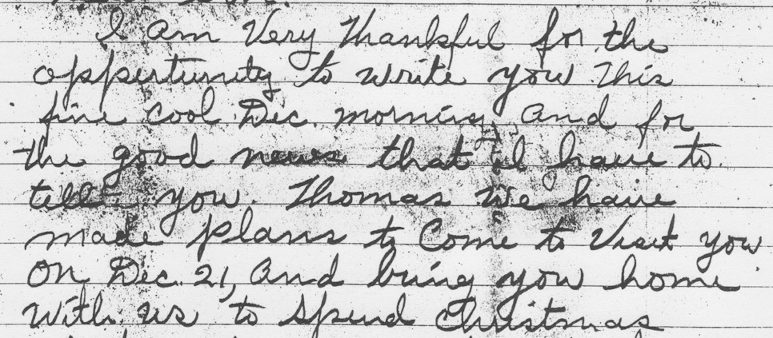 I Am Very Thankful for the
oppertunity to write you This
fine cool Dec. morning, And for
the good news that I have to
tell you. Thomas We have
made plans to Come to Visit you
On Dec. 21, And bring you home
With us to Spend Christmas